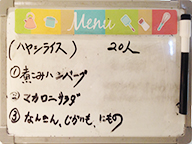 Menu
(ハヤシライス) 20人
①煮こみハンバーグ
②マカロニサラダ
③なんきん、じゃがいも、にもの